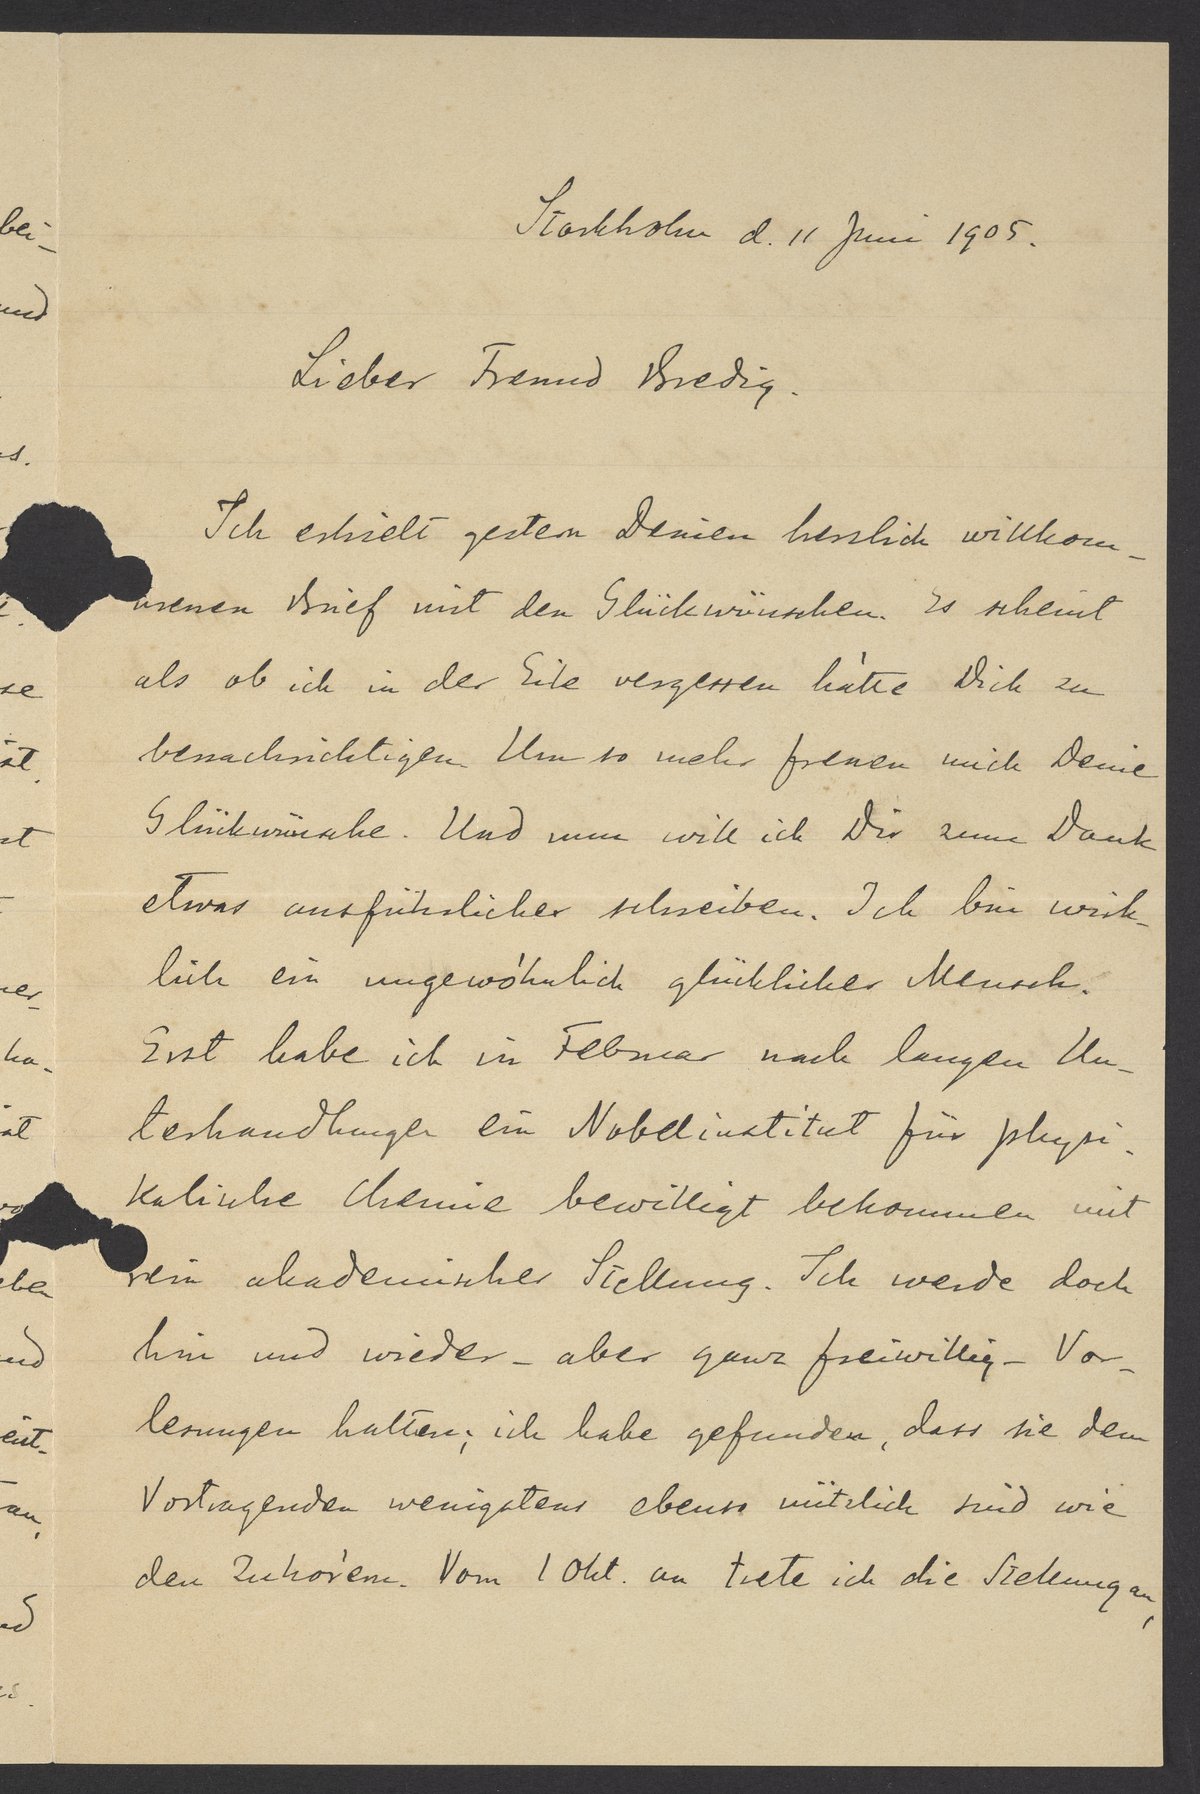 Stockholm d. 11 Juni 1905.
Lieber Freund Bredig.
Ich erhielt gestern Deinen herzlich willkom-
menen Brief mit den Glückwünschen. Es scheint
als ob ich in der Eile vergessen hätte Dich zu
benachrichtigen. Um so mehr freuen mich Deine
Glückwünsche. Und nun will ich Dir zum Dank
etwas ausführlicher schreiben. Ich bin wirk-
lich ein ungewöhnlich glücklicher Mensch.
Erst habe ich in Februar nach langen Un-
terhandlungen ein Nobelinstitut für physi-
kalische Chemie bewilligt bekommen mit
rein akademischer Stellung. Ich werde doch
hin und wieder - aber ganz freiwillig - Vor-
lesungen halten; ich habe gefunden, dass sie dem
Vortragenden wenigstens ebenso nützlich sind wie
den Zuhörern. Vom 1 Okt. an trete ich die Stellung an,